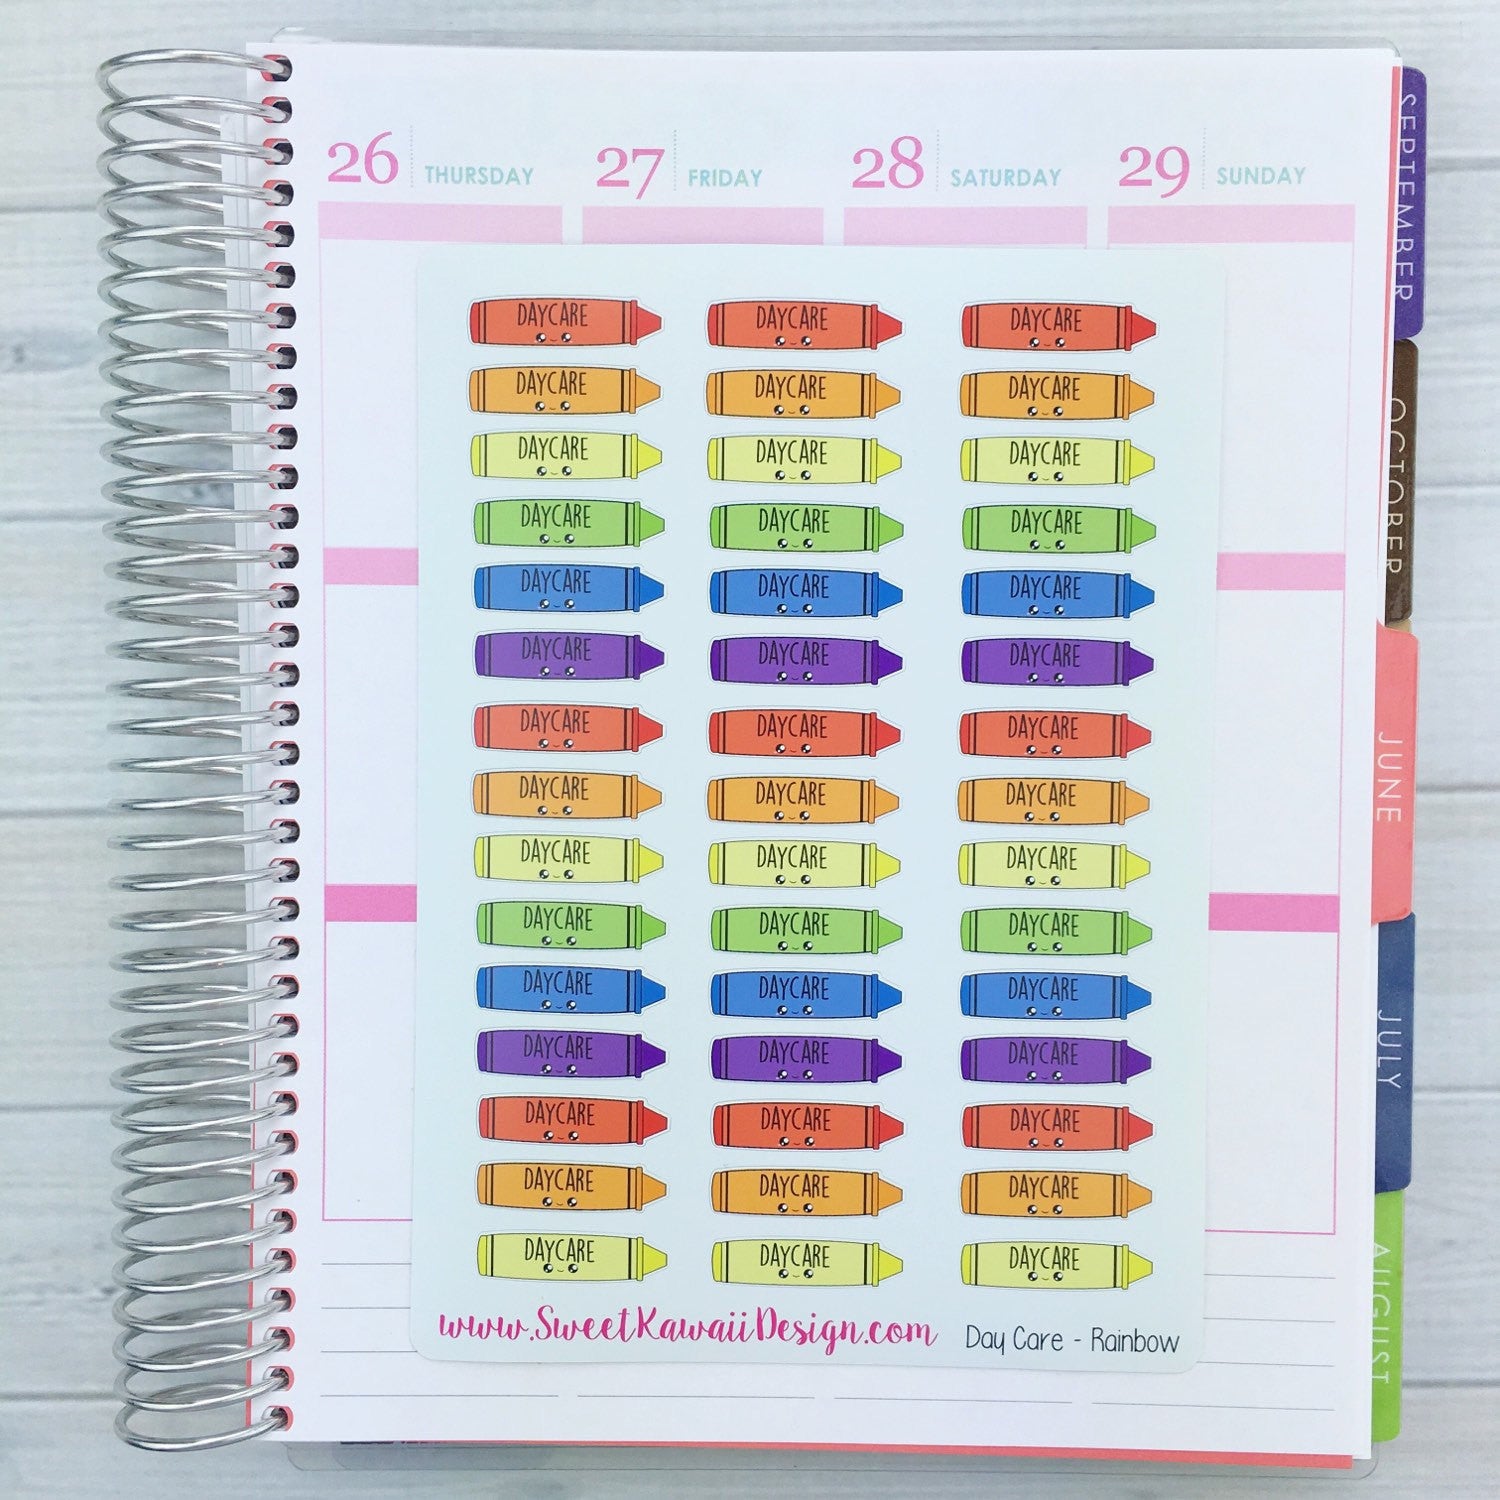 26 THURSDAY 27 FRIDAY 28 SATURDAY 29 SUNDAY
DAYCARE DAYCARE DAYCARE
DAYCARE DAYCARE DAYCARE
DAYCARE DAYCARE DAYCARE
DAYCARE DAYCARE DAYCARE
DAYCARE DAYCARE DAYCARE
DAYCARE DAYCARE DAYCARE
DAYCARE DAYCARE DAYCARE
DAYCARE DAYCARE DAYCARE
DAYCARE DAYCARE DAYCARE
DAYCARE DAYCARE DAYCARE
DAYCARE DAYCARE DAYCARE
DAYCARE DAYCARE DAYCARE
DAYCARE DAYCARE DAYCARE
DAYCARE DAYCARE DAYCARE
DAYCARE DAYCARE DAYCARE
www.SweetKawaiiDesign.com Day Care - Rainbow
SEPTEMBER
OCTOBER
JUNE
JULY
AUGUST